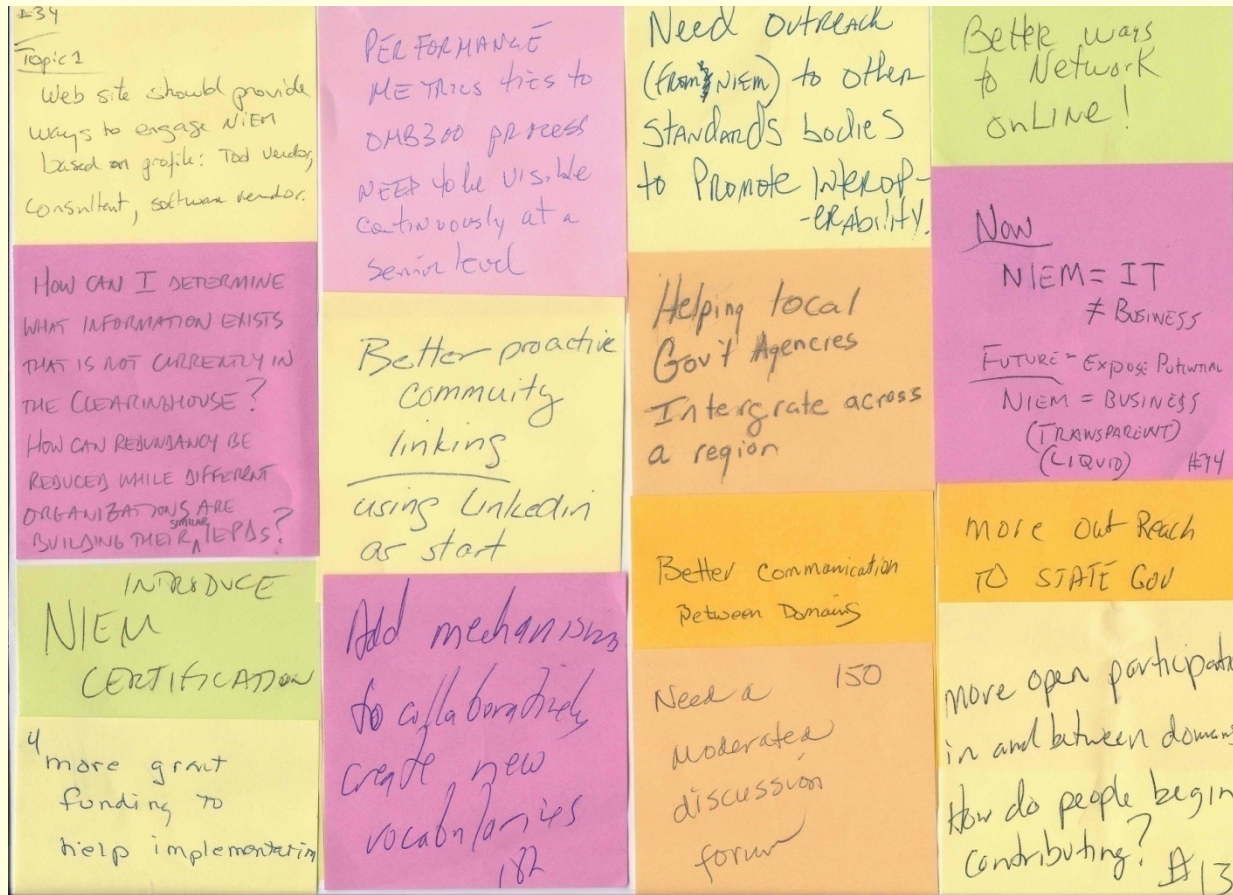 #34
Topic 1
Web site should provide
ways to engage NIEM
based on profile: Tool vendor,
Consultant, software vendor.
HOW CAN I DETERMINE
WHAT INFORMATION EXISTS
THAT IS NOT CURRENTLY IN
THE CLEARINGHOUSE?
HOW CAN REDUNDANCY BE
REDUCED WHILE DIFFERENT
ORGANIZATIONS ARE
BUILDING THEIR SIMILAR IEPDs?
INTRODUCE
NIEM
CERTIFICATION
4
more grant
funding to
help implementation
PERFORMANCE
METRICS ties to
OMB300 process
NEED to be visible
continuously at a
senior level
Better proactive
commuity
linking
using Linkedin
as start
Add mechanisms
to collaboratively
create new
vocabularies
182
Need Outreach
(from NIEM) to other
standards bodies
to Promote Interop-
-erability.
Helping local
Gov't Agencies
Intergrate across
a region
Better Communication
Between Domains
Need a 150
moderated
discussion
forum
Better ways
to Network
onLINE!
Now
NIEM = IT
≠ BUSINESS
FUTURE - Expose Potential
NIEM = BUSINESS
(TRANSPARENT)
(LIQUID) #94
more Out Reach
TO STATE GOV
more open participation
in and between domains
How do people begin
contributing?
#13